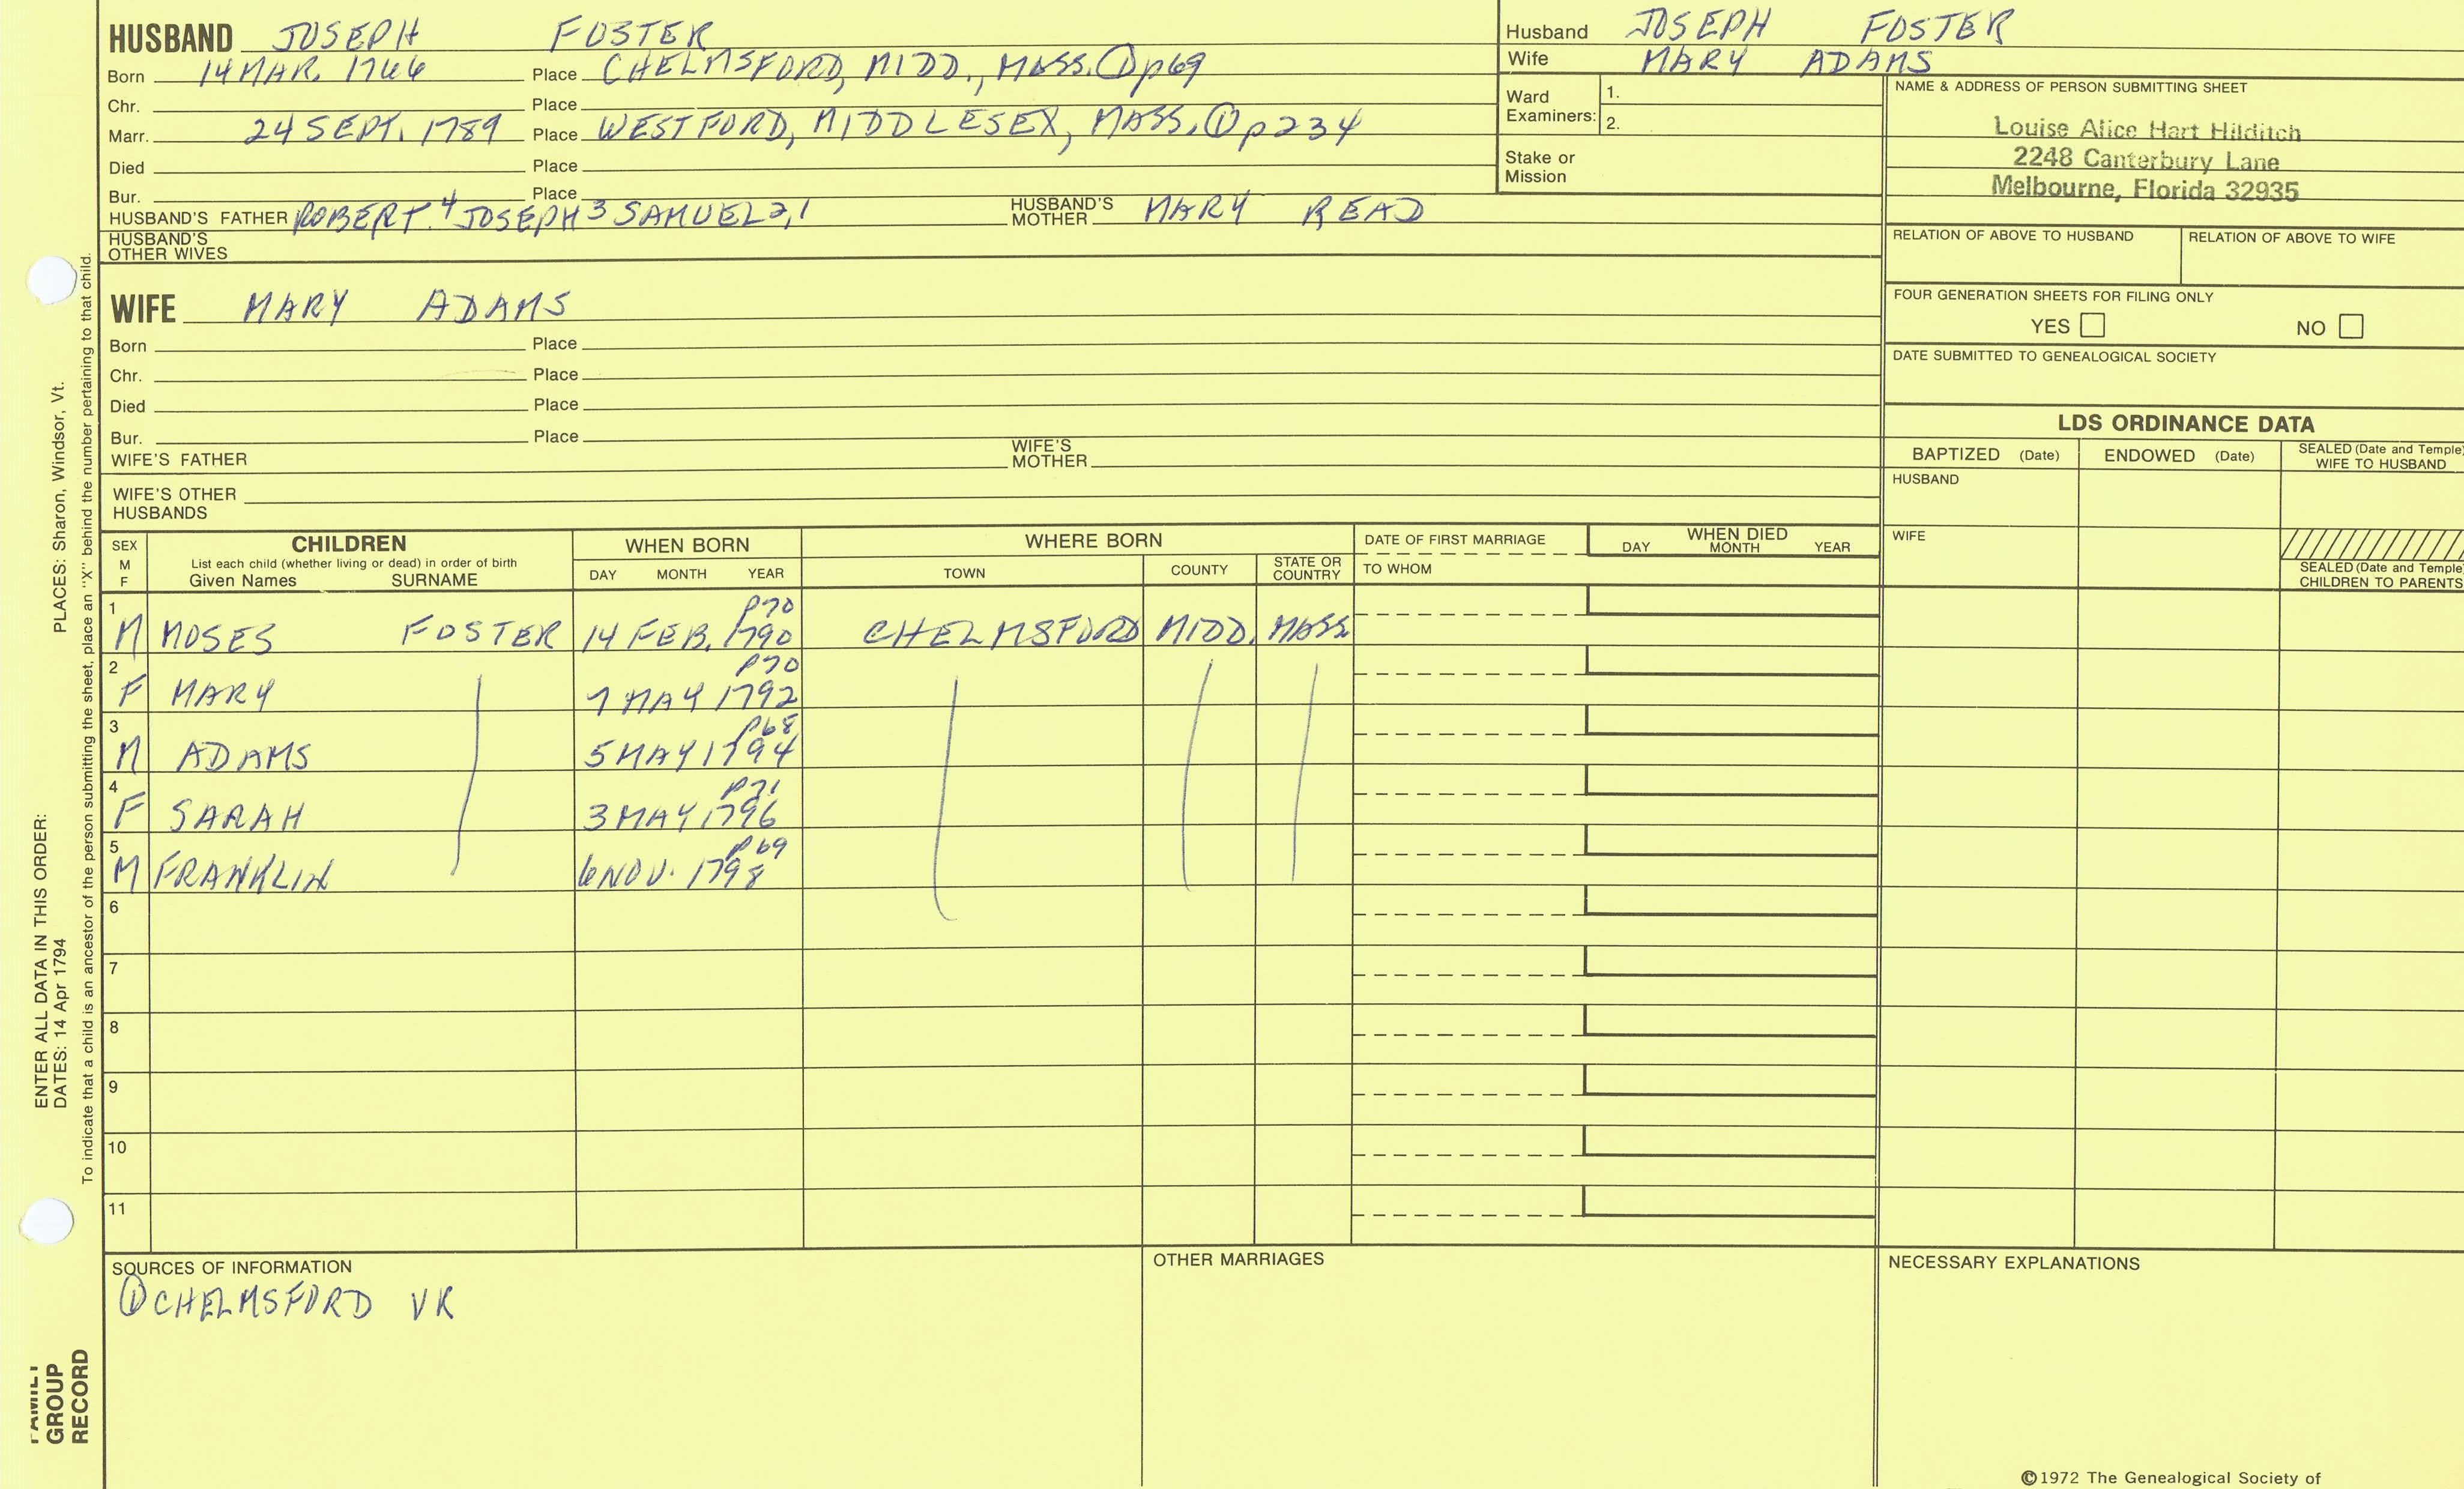 HUSBAND JOSEPH FOSTER
Born 14 MAR. 1766 Place CHELMSFORD, MIDD., MASS. ① p69
Chr. Place
Marr. 24 SEPT. 1789 Place WESTFORD, MIDDLESEX, MASS. ① p234
Died Place
Bur. Place
HUSBAND'S FATHER ROBERT.4 JOSEPH3 SAMUEL2,1 HUSBAND'S MOTHER MARY READ
HUSBAND'S OTHER WIVES
Husband JOSEPH FOSTER
Wife MARY ADAMS
Ward Examiners: 1.
2.
Stake or Mission
NAME & ADDRESS OF PERSON SUBMITTING SHEET
Louise Alice Hart Hilditch
2248 Canterbury Lane
Melbourne, Florida 32935
RELATION OF ABOVE TO HUSBAND RELATION OF ABOVE TO WIFE
FOUR GENERATION SHEETS FOR FILING ONLY
YES NO
DATE SUBMITTED TO GENEALOGICAL SOCIETY
WIFE MARY ADAMS
Born Place
Chr. Place
Died Place
Bur. Place
WIFE'S FATHER WIFE'S MOTHER
WIFE'S OTHER HUSBANDS
LDS ORDINANCE DATA
BAPTIZED (Date) ENDOWED (Date) SEALED (Date and Temple) WIFE TO HUSBAND
HUSBAND
WIFE
SEALED (Date and Temple) CHILDREN TO PARENTS
SEX M F
CHILDREN
List each child (whether living or dead) in order of birth
Given Names SURNAME
WHEN BORN
DAY MONTH YEAR
WHERE BORN
TOWN COUNTY STATE OR COUNTRY
DATE OF FIRST MARRIAGE
TO WHOM
WHEN DIED
DAY MONTH YEAR
1 p70
M MOSES FOSTER 14 FEB. 1790 CHELMSFORD MIDD. MASS
2 p70
F MARY 7 MAY 1792
3 p68
M ADAMS 5 MAY 1794
4 p71
F SARAH 3 MAY 1796
5 p69
M FRANKLIN 6 NOV. 1798
6
7
8
9
10
11
SOURCES OF INFORMATION
① CHELMSFORD VR
OTHER MARRIAGES
NECESSARY EXPLANATIONS
©1972 The Genealogical Society of
ENTER ALL DATA IN THIS ORDER:
DATES: 14 Apr 1794 PLACES: Sharon, Windsor, Vt.
To indicate that a child is an ancestor of the person submitting the sheet, place an "X" behind the number pertaining to that child.
FAMILY
GROUP
RECORD